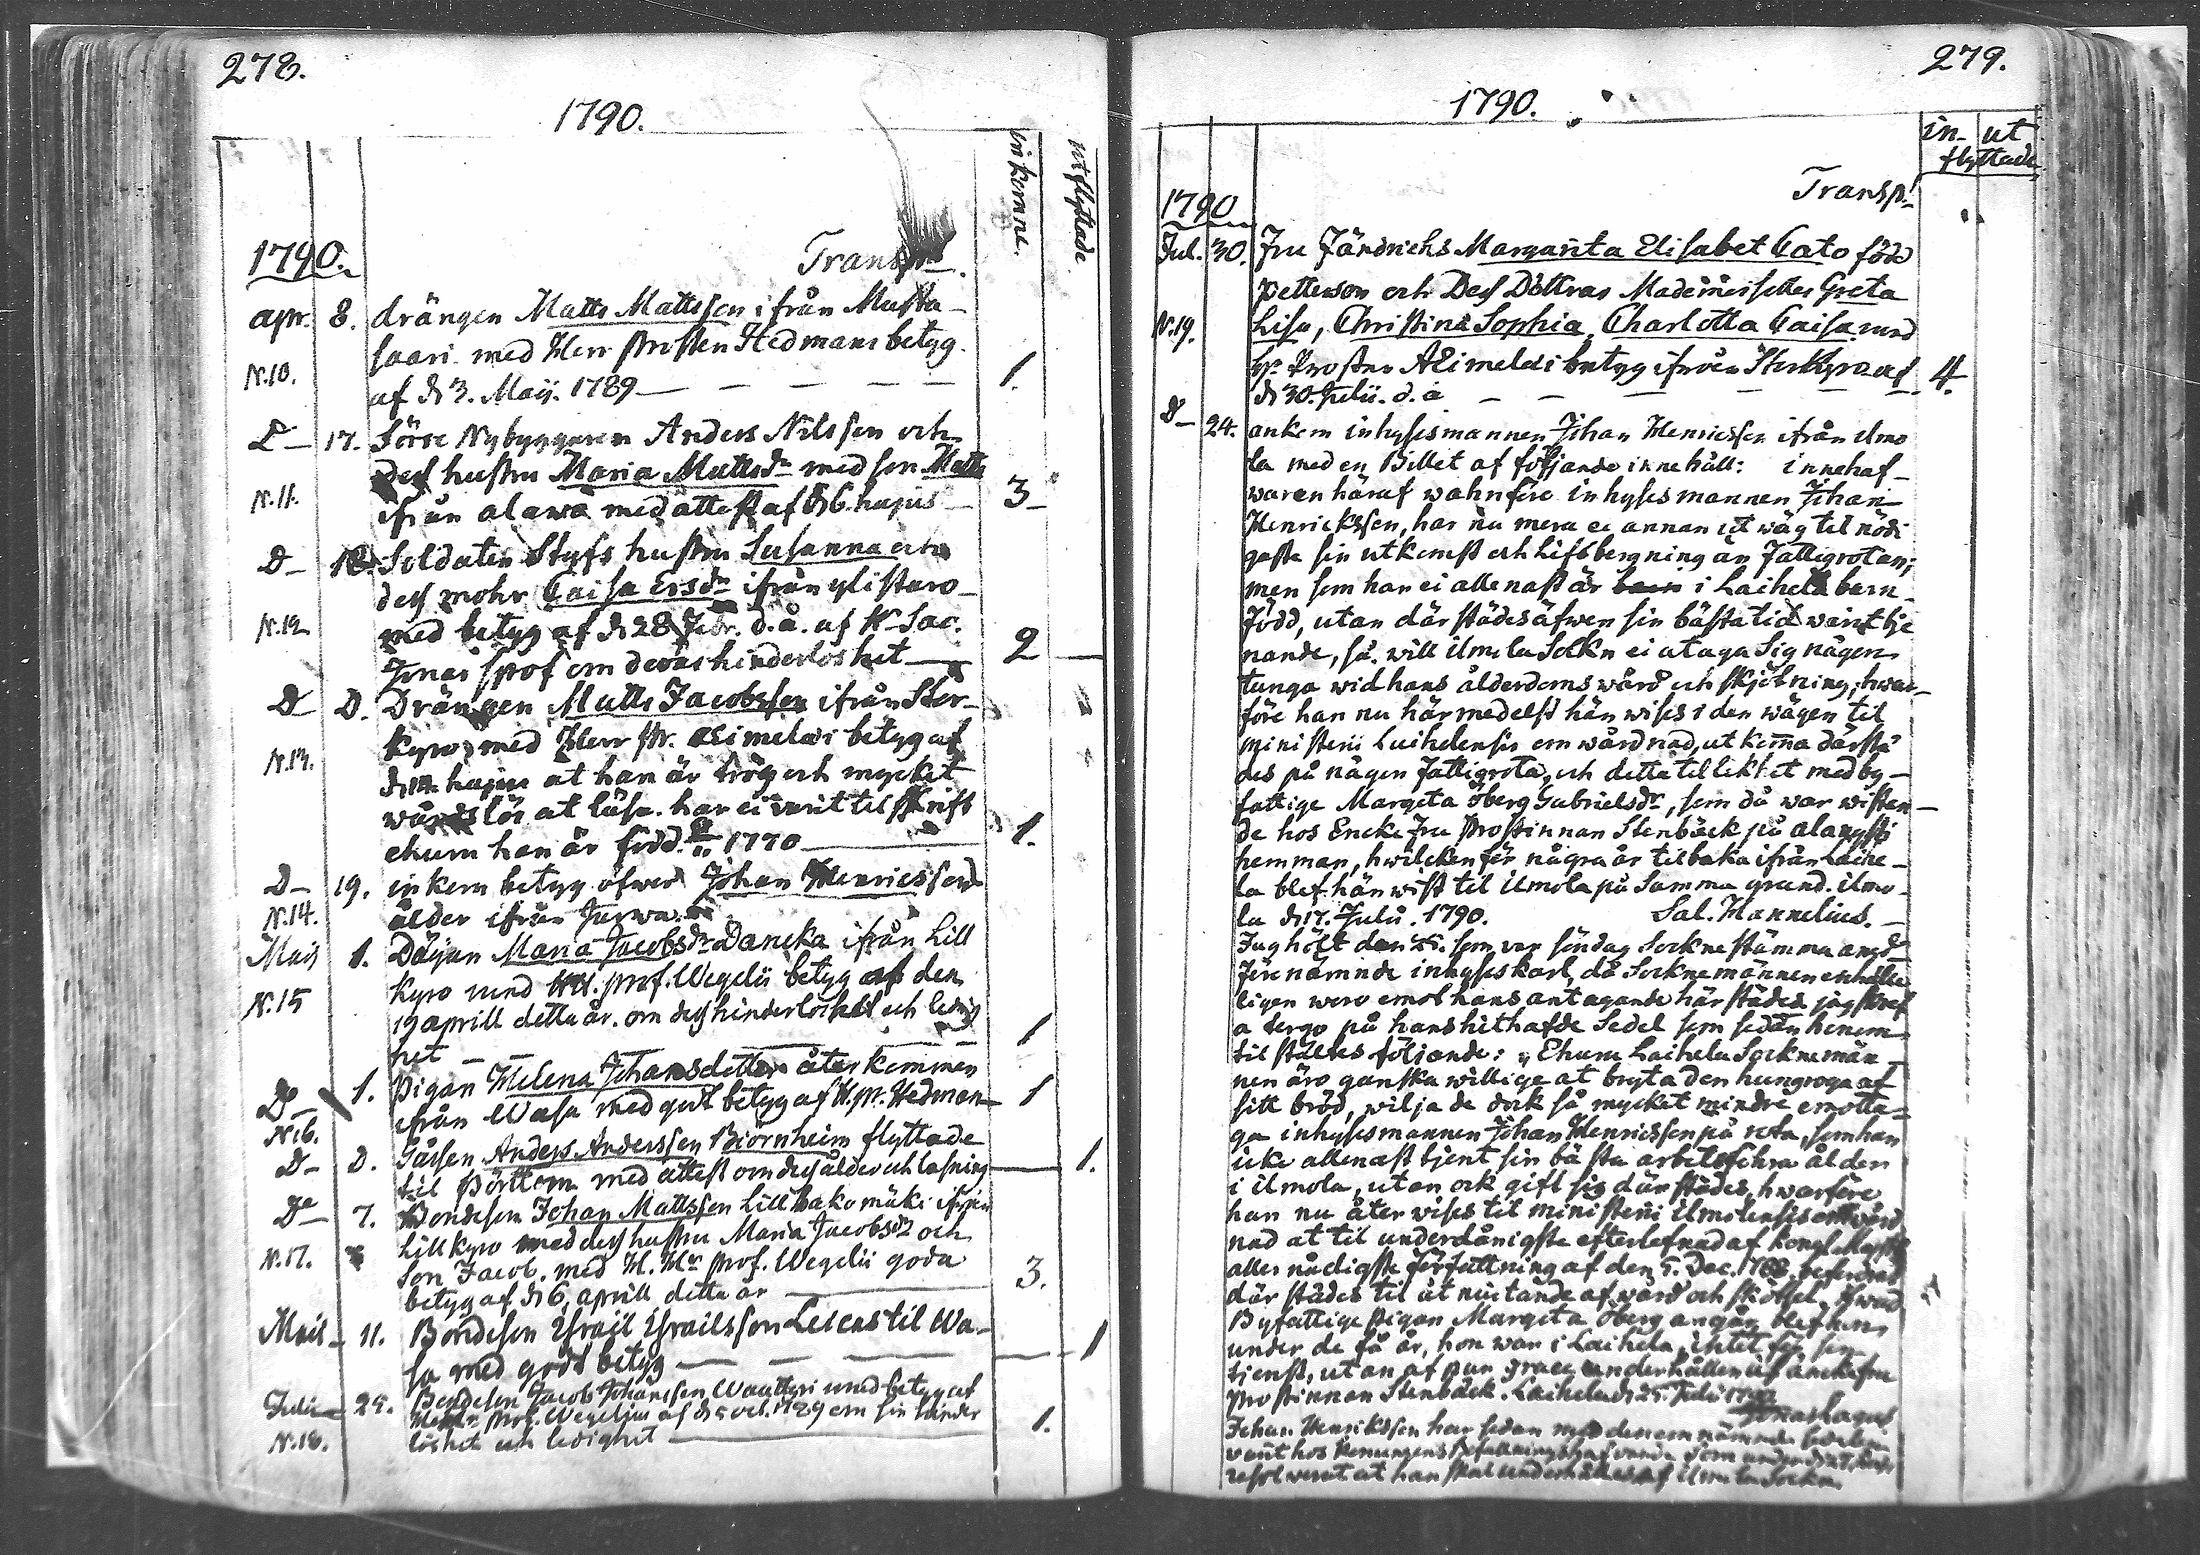 278.
1790.
inkomne.
utflyttade
1790.
Transp.
apr. 8. drängen Matts Mattsson ifrån Musta-
N.10. saari med Herr Prosten Hedmans betyg
af d. 3. Maij. 1789 1.
D 17. Förre Nybyggaren Anders Nilsson och
Dess hustru Maria Mattsdr med son Matts
N.11. ifrån alawa med attest af d. 6. hujus 3
D 18. Soldaten Styfs hustru Susanna och
dess mohr Caisa Ersdr ifrån ylistaro
N.12 med betyg af d. 28 Febr. d. å. af
om deras hinderlöshet 2
D D. Drängen Matts Jacobsson ifrån Stor-
kyro, med Herr Pr. Aeimelaei betyg af
N.13. hujus at han är trög och mycket
wårdslös at läsa. har ei varit til skrift
ehuru han är född 1770 1.
D 19. inkom betyg öfwer Johan Henricsson
N.14. ålder ifrån Jurwa.
Maij 1. Pigan Maria Jacobsdr Dancka ifrån Lill
N.15 Kyro med prof. Wegelii betyg af den
19 aprill detta år. om dess hinderlöshet och ledig
het 1
D 1. Pigan Helena Johansdotter återkommen
N.16. ifrån Wasa med godt betyg af H. pr. Hedman 1
D D. Gåssen Anders Andersson Biörnheim flyttade
til Pörttom med attest om dess ålder och läsning 1.
D 7. Bondeson Johan Mattsson Lill ifrån
N.17. Lillkyro med dess hustru Maria Jacobsdr och
Son Jacob. med H. Mr prof. Wegelii goda
betyg af d. 6. aprill detta år 3.
Maii 11. Bondeson Israil Israilsson Leicas til Wa-
sa med godt betyg 1
Julii 25. Bondeson Jacob Johansson med betyg af
prof. Wegelius af d. 5 oct. 1789 om sin hinder
N.18. löshet och ledighet 1.
279.
1790.
in- ut
flyttade
Transp.
1790
Jul. 30. Fru Fändrichs Margarita Elisabet Cato född
Petterson och Dess Döttrar Greta
N.19. Lisa, Christina Sophia, Charlotta Caisa med
hr Prosten Aeimelaei betyg ifrån Storkyro af
d. 30. Julii. d. å 4.
D 24. ankom inhyses mannen Johan Henricsson ifrån ilmo
la med en Billet af följande innehåll: innehaf-
waren häraf wahnföre inhyses mannen Johan
Henricksson, har nu mera ei annan utwäg til nödi
gaste sin utkomst och Lifsbergning än Fattigrotan;
men som han ei allenast är i Laihela barn-
född, utan där städes äfwen sin bästa tid warit tje
nande, så. will ilmola Sockn ei ataga Sig någon
tunga wid hans ålderdoms wård och skjötning; hwar-
före han nu härmedelst hän wises i den wägen til
ministerii Laihelensis om wårdnad, at komma därstä
des på någon Fattigrota, och detta til likhet med by-
fattige Margeta Öberg Gabrielsdr, som då war wistan-
de hos Encke Fru Prostinnan Stenbäck på
hemman, hwilcken för några år tilbaka ifrån Laihe-
la blef hänwist til ilmola på Samma grund. ilmo-
la d. 17. Julii. 1790. Sal. Hannelius.
Jag hölt den 25. som var söndag Sockne stämma angd
förenämnde inhyses karl, då Sockne männen enhälle
ligen woro emot hans antagande här städes jag skref
a tergo på hans hithafde Sedel som sedan honom
til stältes följande: Ehuru Laihela Sockne män-
nen äro ganska willige at bryta den hungroga af
sitt bröd, wilja de dock så mycket mindre emotta-
ga inhyses mannen Johan Henricsson på rota, som han
icke allenast tjent sin bästa arbetsföhra ålder
i ilmola, utan ock gift sig där städes, hwarföre
han nu åter wises til ministerii ilmolensis omwård
nad at til underdånigste efterlefnad af Kongl. Majts
aller nådigste Författning af den 5. Dec. befordras
där städes til åtniutande af wård och skötsel. Hwad
Byfattige Pigan Margeta Öberg angår, blef hon
under de få år, hon war i Laihela, intet för sin
tjenst, utan af pur grace underhållen af anckefru
Prostinnan Stenbäck. Laihela d. 25. Julii 1790
Jonas Lagus
Johan Henriksson har sedan med den nämnde sedelen
varit hos Konungens Befallningshafvande som under
resolverat at han skal underhållas af ilmola Sockn.